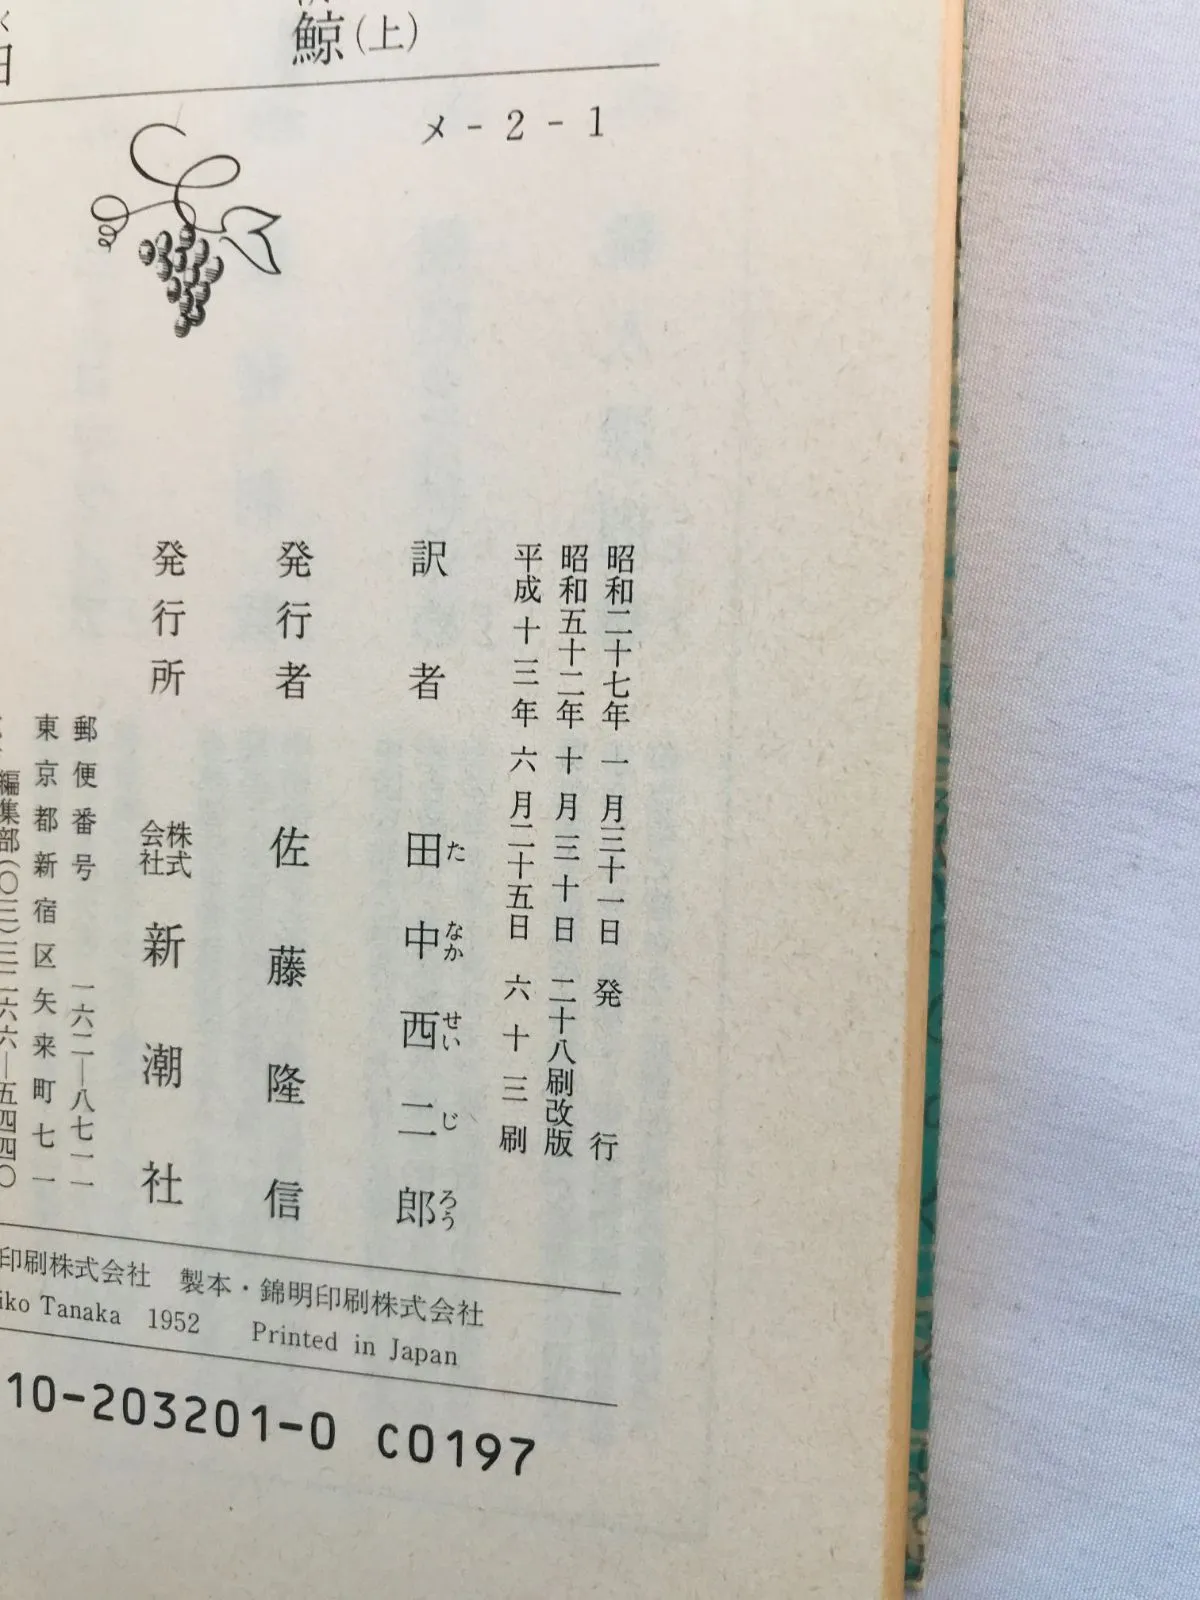 鯨(上)
メ-2-1
昭和二十七年 一 月三十一日 発 行
昭和五十二年 十 月 三 十 日 二十八刷改版
平成 十 三 年 六 月二十五日 六 十 三 刷
訳 者 田中西二郎
た なか せい じ ろう
発行者 佐藤隆信
発行所 株式会社 新潮社
郵便番号 一六二―八七一一
東京都新宿区矢来町七一
編集部(〇三)三二六六―五四四〇
印刷株式会社 製本・錦明印刷株式会社
iko Tanaka 1952 Printed in Japan
10-203201-0 C0197